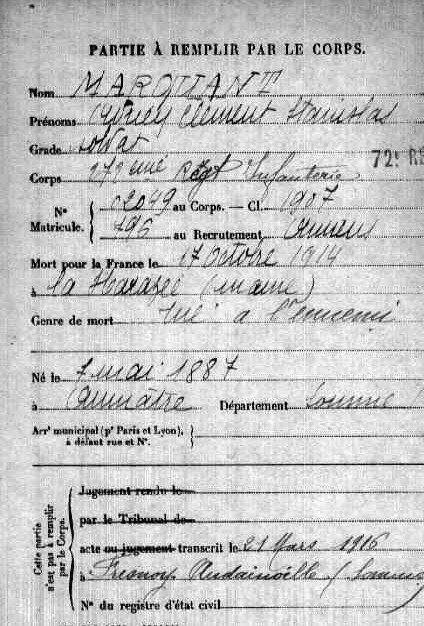 PARTIE À REMPLIR PAR LE CORPS.
Nom MARQUANT
Prénoms Clément Stanislas
Grade soldat
Corps 272eme Régt Infanterie
72e R
N° Matricule. 02049 au Corps. — Cl. 1907
796 au Recrutement Amiens
Mort pour la France le 17 Octobre 1914
à la Harazée (marne)
Genre de mort tué à l'ennemi
Né le 7 mai 1887
à Aumatre Département Somme
Arrt municipal (pr Paris et Lyon), à défaut rue et N°.
Cette partie n'est pas à remplir par le Corps.
Jugement rendu le
par le Tribunal de
acte ou jugement transcrit le 21 Mars 1916
à Fresnoy Andainville (Somme)
N° du registre d'état civil